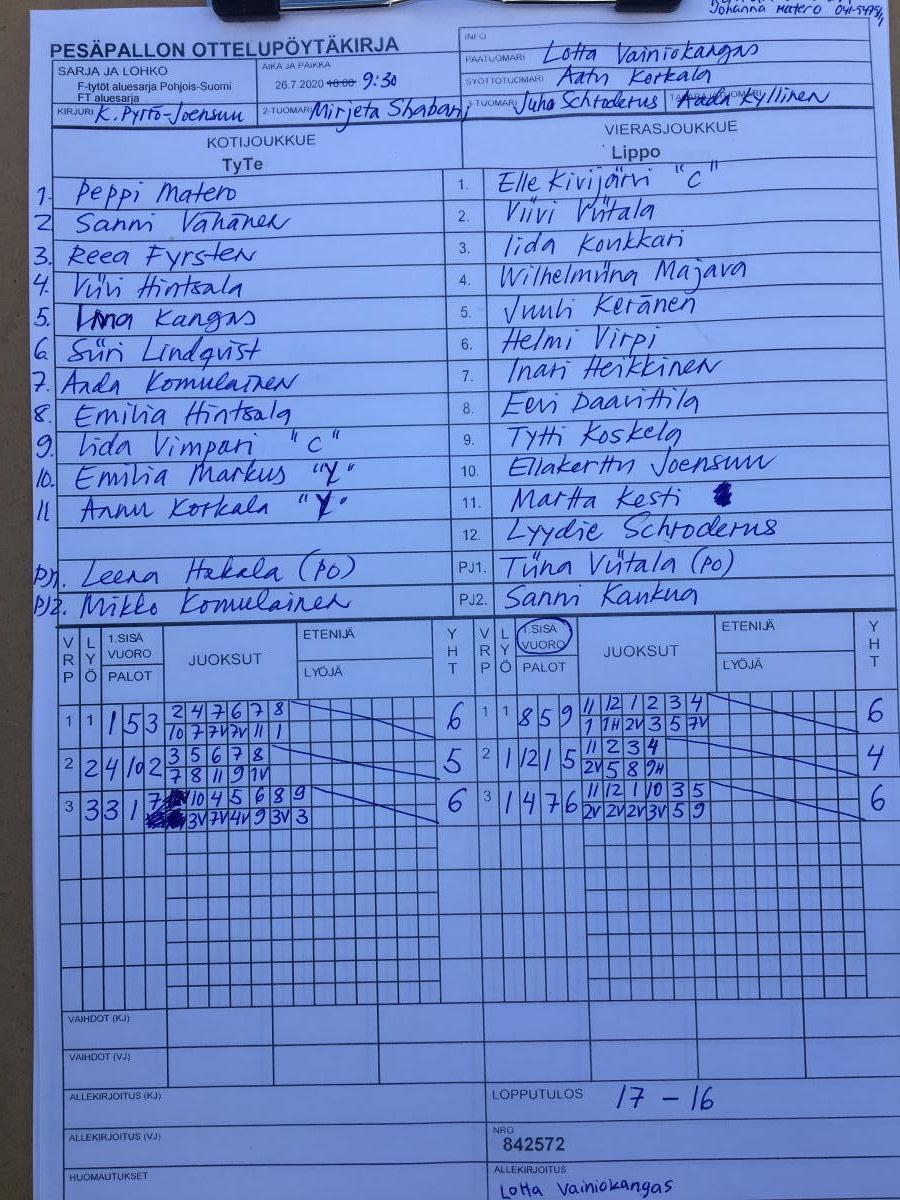 Johanna Matero
PESÄPALLON OTTELUPÖYTÄKIRJA
INFO
PÄÄTUOMARI Lotta Vainiokangas
SARJA JA LOHKO
F-tytöt aluesarja Pohjois-Suomi
FT aluesarja
AIKA JA PAIKKA
26.7.2020 10:00 9:30
SYÖTTÖTUOMARI Aatu Korkala
KIRJURI K. Pyrrö-Joensuu
2-TUOMARI Mirjeta Shabani
3-TUOMARI Juho Schroderus
Aada Kyllinen
KOTIJOUKKUE
TyTe
VIERASJOUKKUE
Lippo
1. Peppi Matero
1. Elle Kivijärvi "C"
2. Sanni Vähänen
2. Viivi Viitala
3. Reea Fyrsten
3. Iida Konkkari
4. Viivi Hintsala
4. Wilhelmiina Majava
5. Kangas
5. Juuli Keränen
6. Siiri Lindqvist
6. Helmi Virpi
7. Aada Komulainen
7. Inari Heikkinen
8. Emilia Hintsala
8. Eevi Daavittila
9. Iida Vimpari "C"
9. Tytti Koskela
10. Emilia Markus "Y"
10. Ellakerttu Joensuu
11 Annu Korkala "Y"
11. Martta Kesti
12. Lyydie Schroderus
PJ1. Leena Hakala (PO)
PJ1. Tiina Viitala (PO)
PJ2. Mikko Komulainen
PJ2. Sanni Kaukua
VRP LYÖ 1.SISÄ VUORO PALOT JUOKSUT ETENIJÄ LYÖJÄ YHT
VRP LYÖ 1.SISÄ VUORO PALOT JUOKSUT ETENIJÄ LYÖJÄ YHT
1 1 1 5 3 2 4 7 6 7 8 6
10 7 7V 7V 11 1
1 1 8 5 9 11 12 1 2 3 4 6
1 1H 2V 3 5 7V
2 2 4 10 2 3 5 6 7 8 5
7 8 11 9 1V
2 1 12 1 5 11 2 3 4 4
2V 5 8 9H
3 3 3 1 7 10 4 5 6 8 9 6
3V 7V 4V 9 3V 3
3 1 4 7 6 11 12 1 10 3 5 6
2V 2V 2V 3V 5 9
VAIHDOT (KJ)
VAIHDOT (VJ)
ALLEKIRJOITUS (KJ)
LOPPUTULOS 17 - 16
ALLEKIRJOITUS (VJ)
NRO
842572
HUOMAUTUKSET
ALLEKIRJOITUS
Lotta Vainiokangas